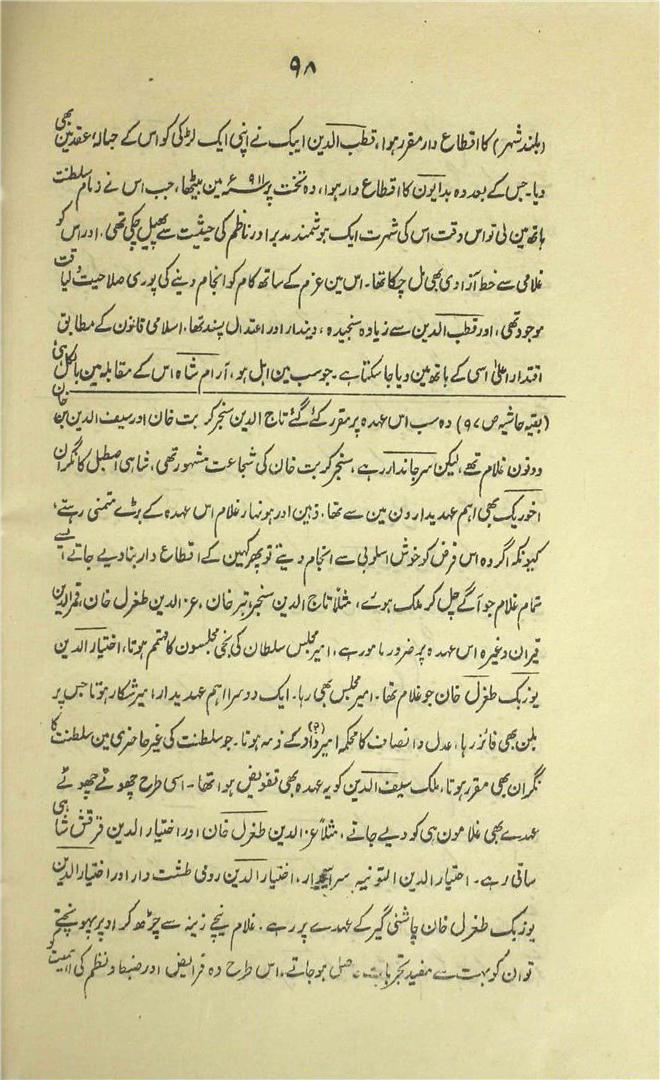 ۹۸
(بلند شہر) کا اقطاع دار مقرر ہوا، قطب الدین ایبک نے اپنی ایک لڑکی کو اس کے حبالۂ عقد مین بھی
دیا۔ جس کے بعد وہ بدایون کا اقطاع دار ہوا، وہ تخت پر مین بیٹھا، جب اس نے زمام سلطنت
ہاتھ مین لی تو اس وقت اس کی شہرت ایک ہوشمند مدبر اور ناظم کی حیثیت سے پھیل چکی تھی۔ اور اس کو
غلامی سے خط آزادی بھی مل چکا تھا۔ اس مین عزم کے ساتھ کام کو انجام دینے کی پوری صلاحیت و لیاقت
موجود تھی، اور قطب الدین سے زیادہ سنجیدہ، دیندار اور اعتدال پسند تھا، اسلامی قانون کے مطابق
اقتدار اعلیٰ اسی کے ہاتھ مین دیا جا سکتا ہے۔ جو سب مین اہل ہو، آرام شاہ اس کے مقابلہ مین بالکل ہی
(بقیہ حاشیہ ص ۹۷) وہ سب اس عہدہ پر مقرر کئے گئے تاج الدین سنجر کربت خان اور سیف الدین خان
دونون غلام تھے، لیکن سرجاندار رہے، سنجر کربت خان کی شجاعت مشہور تھی، شاہی اصطبل کا نگران
اخور بک بھی اہم عہدیدارون مین سے تھا۔ ذہین اور ہونہار غلام اس عہدہ کے بڑے متمنی رہتے،
کیونکہ اگر وہ اس فرض کو خوش اسلوبی سے انجام دیتے تو پھر کہین کے اقطاع دار بنا دیے جاتے ایسے
تمام غلام جو آگے چل کر ملک ہوئے، مثلاً تاج الدین سنجر تبر خان، عز الدین طغرل خان، قمر الدین
قیران وغیرہ اس عہدہ پر ضرور مامور رہے، امیر مجلس سلطان کی نجی مجلسون کا مہتمم ہوتا، اختیار الدین
یوزبک طغرل خان جو غلام تھا۔ امیر مجلس بھی رہا۔ ایک دوسرا اہم عہدیدار امیر شکار ہوتا جس پر
بلبن بھی فائز رہا، عدل و انصاف کا محکمہ امیر داد (؟) کے ذمہ ہوتا۔ جو سلطنت کی غیر حاضری مین سلطنت کا
نگران بھی مقرر ہوتا، ملک سیف الدین کو یہ عہدہ بھی تفویض ہوا تھا۔ اسی طرح چھوٹے چھوٹے
عہدے بھی غلامون ہی کو دیے جاتے، مثلاً عز الدین طغرل خان اور اختیار الدین قرقش شاہی
ساقی رہے۔ اختیار الدین التونیہ، اختیار الدین رومی طشت دار اور اختیار الدین
یوزبک طغرل خان چاشنی گیر کے عہدے پر رہے۔ غلام نیچے زینہ سے چڑھ کر اوپر پہونچتے
تو ان کو بہت سے مفید تجربات حاصل ہو جاتے، اس طرح وہ فرائض اور ضبط و نظم کی اہمیت کو